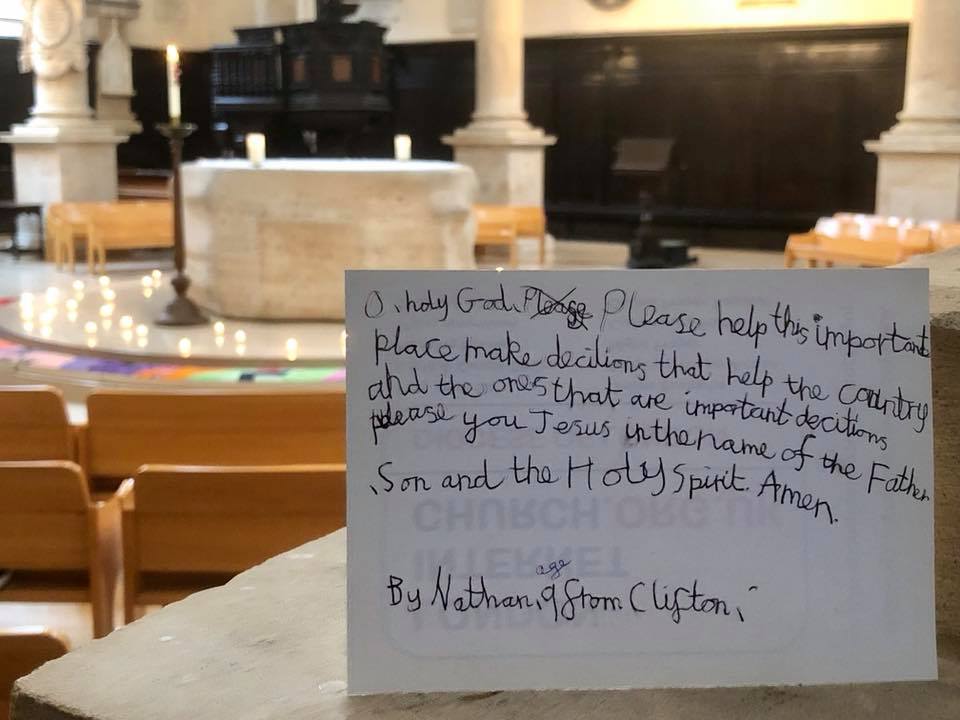 O, holy God, Please Please help this important
place make decitions that help the country
and the ones that are important decitions
please you Jesus in the name of the Father
, Son and the Holy Spirit. Amen.
CHURCH.ORG.UK
INTERNET
LONDON
age
By Nathan, 9 from Clifton,